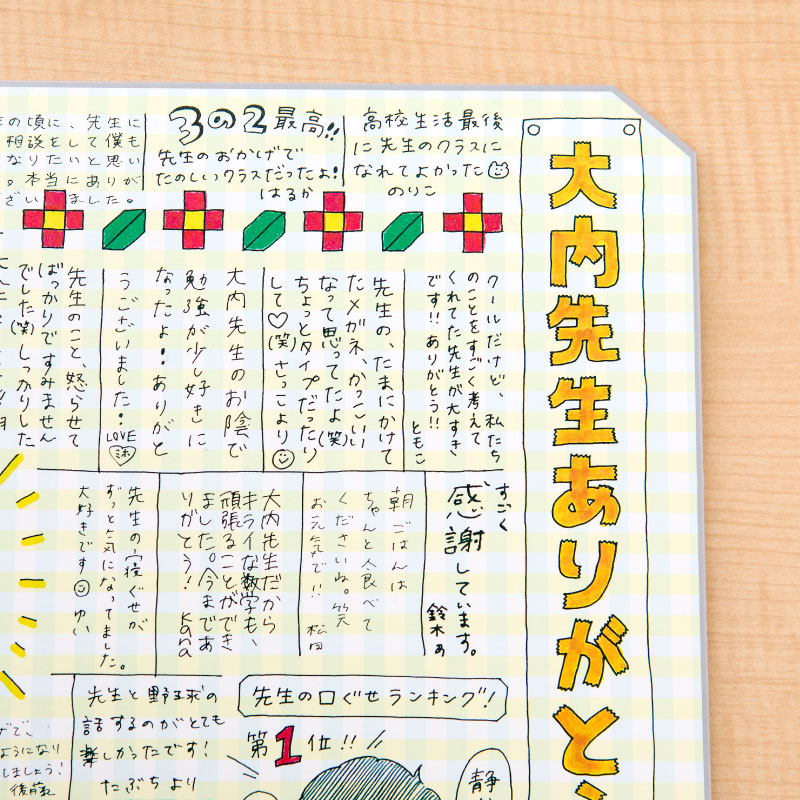 大内先生ありがと
高校生活最後
に先生のクラスに
なれてよかった
のりこ
3の2最高!!
先生のおかげで
たのしいクラスだったよ!
はるか
の頃に、先生に
相談をして僕も
なりたいと思い
。本当にありが
ざいました。
クールだけど、私たち
のことをすごく考えて
くれてた先生が大すき
です!!ありがとう!!
ともこ
先生の、たまにかけて
たメガネ、かっこいい
なって思ってたよ(笑)
ちょっとタイプだったり
して♡(笑)さっこより☺
大内先生のお陰で
勉強が少し好きに
なったよ!ありがと
うございました!
LOVE
先生のこと、怒らせて
ばっかりですみません
でした(笑)しっかりした
すごく
感謝しています。
鈴木
朝ごはんは
ちゃんと食べて
くださいね。笑
お元気で!!
松田
大内先生だから
キライな数学も、
頑張ることができ
ました。今まであ
りがとう!
Kana
先生の寝ぐせが
ずっと気になってました。
大好きです☺ ゆい
先生の口ぐせランキング!
第1位!!
静か
先生と野球の
話するのがとても
楽しかったです!
たぶちより
げで、
ようになり
しましょう!
後藤